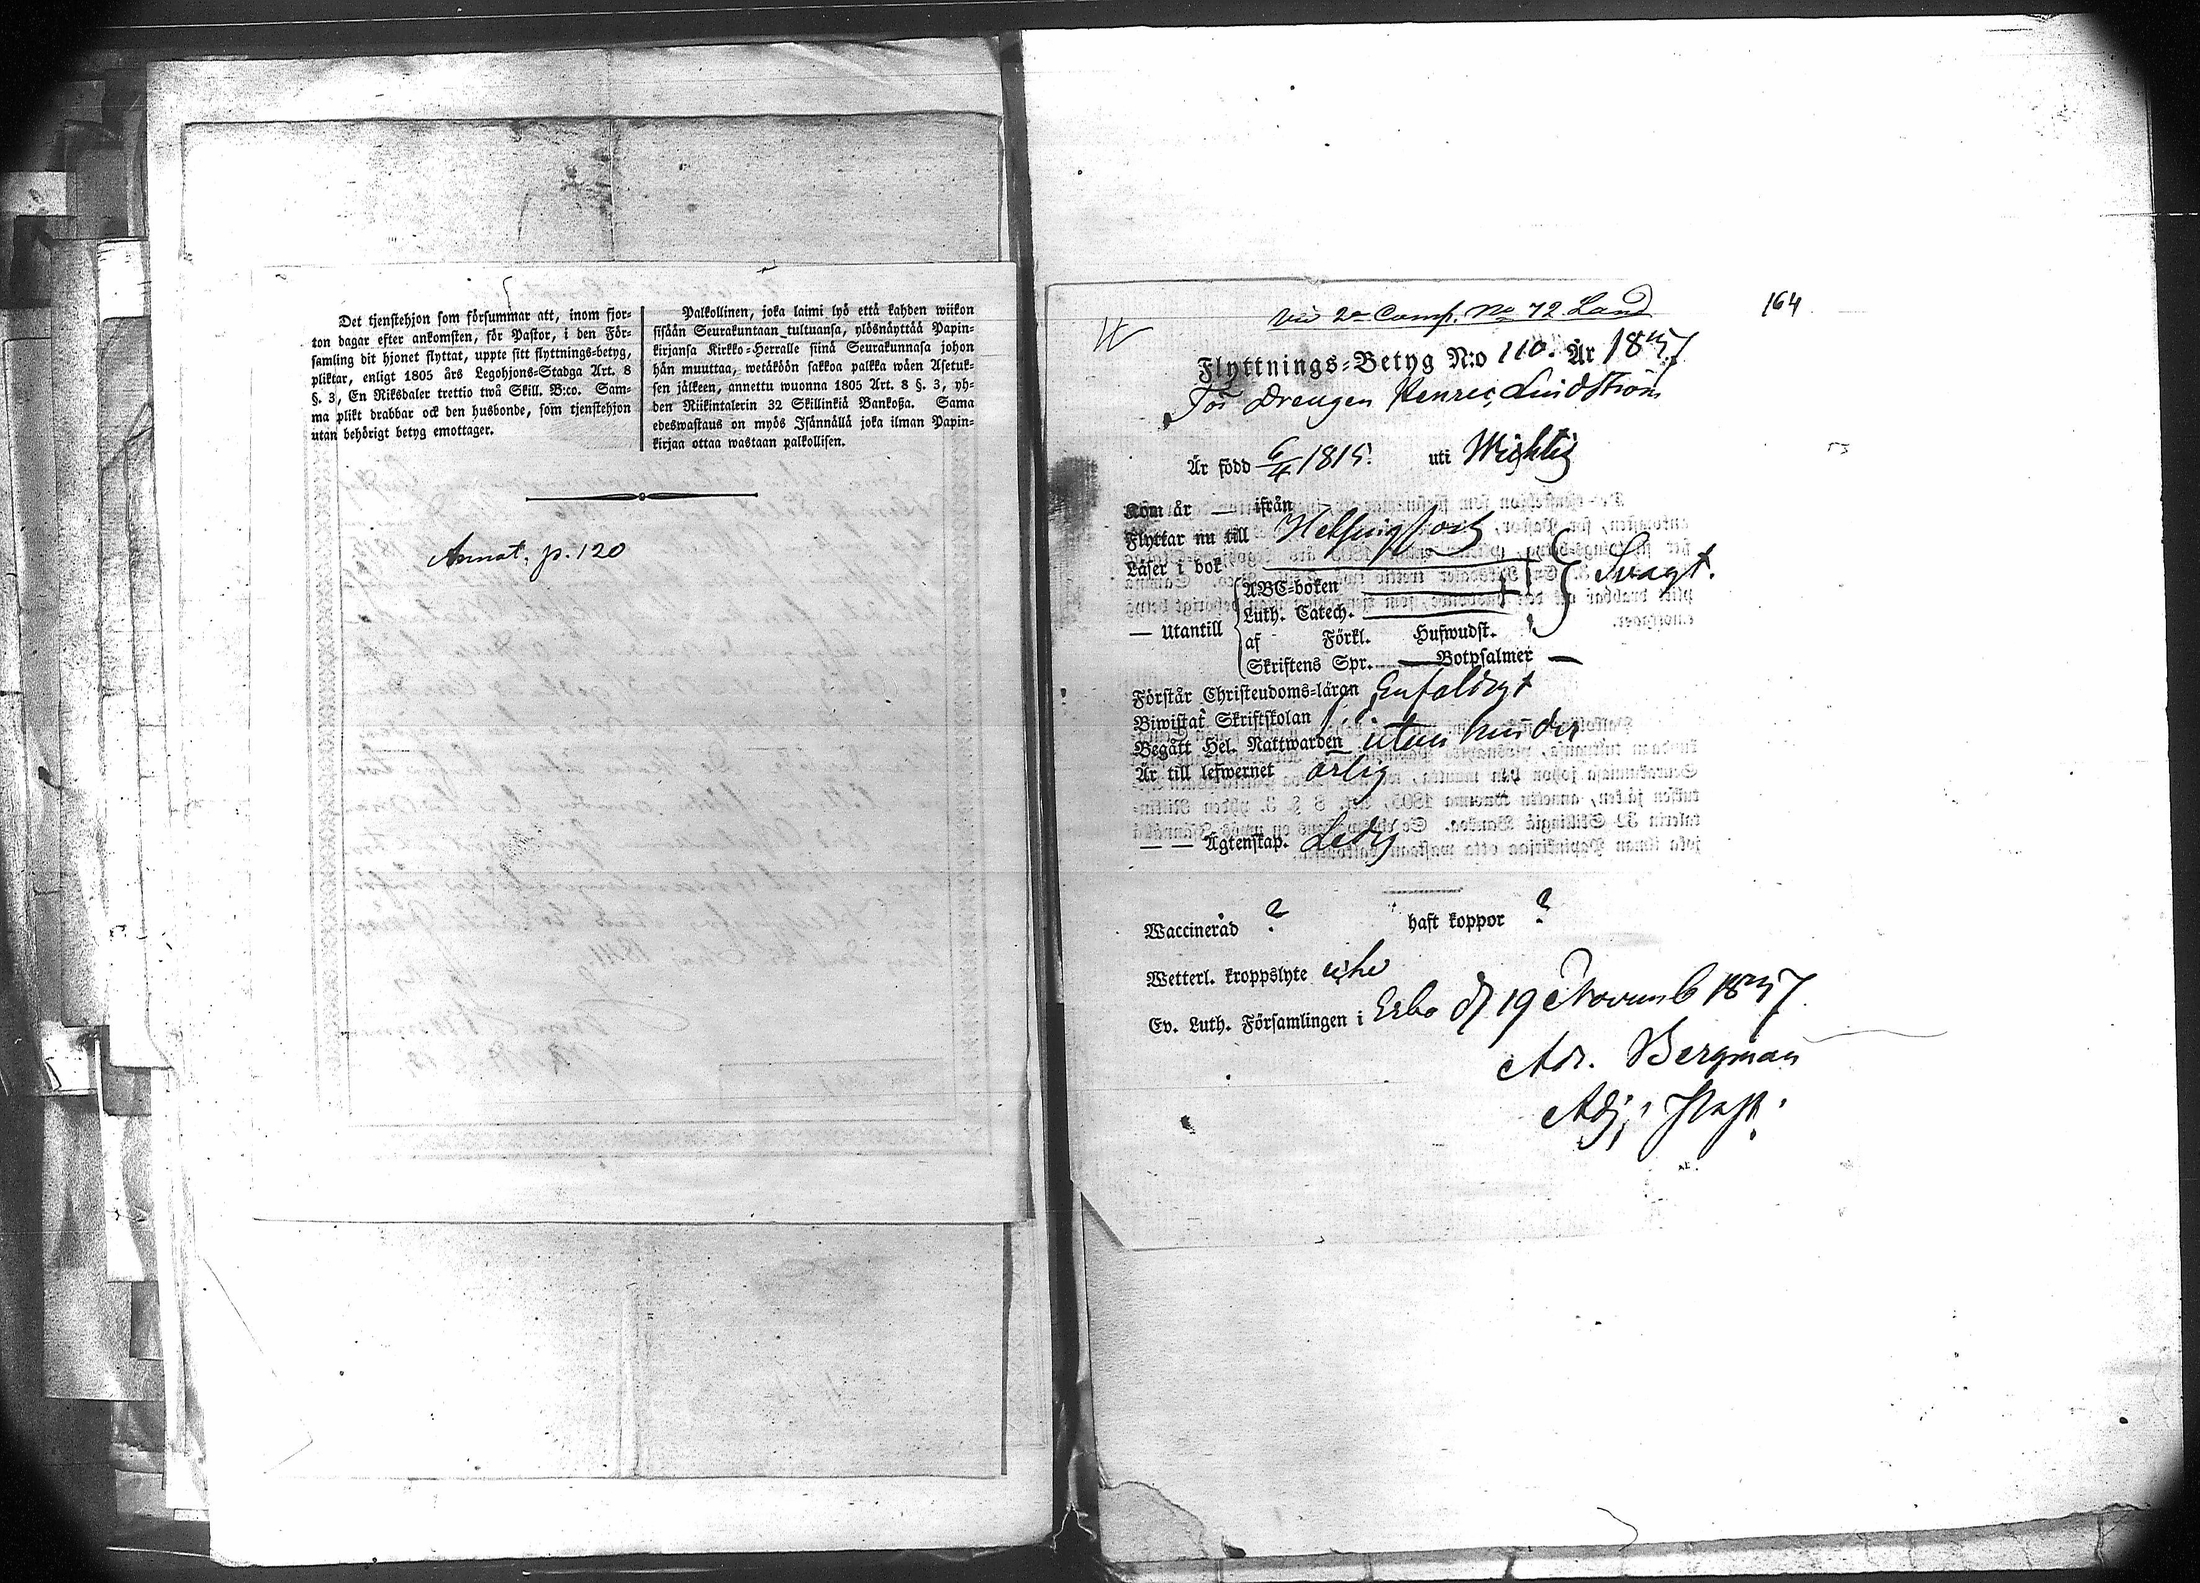 Det tjenstehjon som försummar att, inom fjor-
ton dagar efter ankomsten, för Pastor, i den För-
samling dit hjonet flyttat, uppte sitt flyttnings-betyg,
pliktar, enligt 1805 års Legohjons-Stadga Art. 8
§. 3, En Riksdaler trettio twå Skill. B:co. Sam-
ma plikt drabbar ock den husbonde, som tjenstehjon
utan behörigt betyg emottager.
Palkollinen, joka laimi lyö että kahden wiikon
sisään Seurakuntaan tultuansa, ylösnäyttää Papin-
kirjansa Kirkko-Herralle siinä Seurakunnasa johon
hän muuttaa, wetäköön sakkoa palkka wäen Asetuk-
sen jälkeen, annettu wuonna 1805 Art. 8 §. 3, yh-
den Riikintalerin 32 Skillinkiä Bankoßa. Sama
edeswastaus on myös Isännällä joka ilman Papin-
kirjaa ottaa wastaan palkollisen.
Annat. p. 120
164
2a Comp. No 72 Land
Flyttnings-Betyg N:o 110. År 1837
För Drengen Henric Lindström
Är född 6/4 1815. uti Wichtis
Kom år — ifrån
Flyttar nu till Helsingfors
Läser i bok
ABC-boken
Svagt.
Luth. Catech.
— Utantill
af Förkl. Hufwudst.
Skriftens Spr. — Botpsalmer —
Förstår Christendoms-läran Enfaldigt
Biwistat Skriftskolan
Begått Hel. Nattwarden utan hinder
Är till lefwernet ärlig
— — Ägtenskap. Ledig
Waccinerad ? haft koppor ?
Wetterl. kroppslyte
Ev. Luth. Församlingen i Esbo d 19 Novemb 1837
Adr. Bergman
Adj: Past: